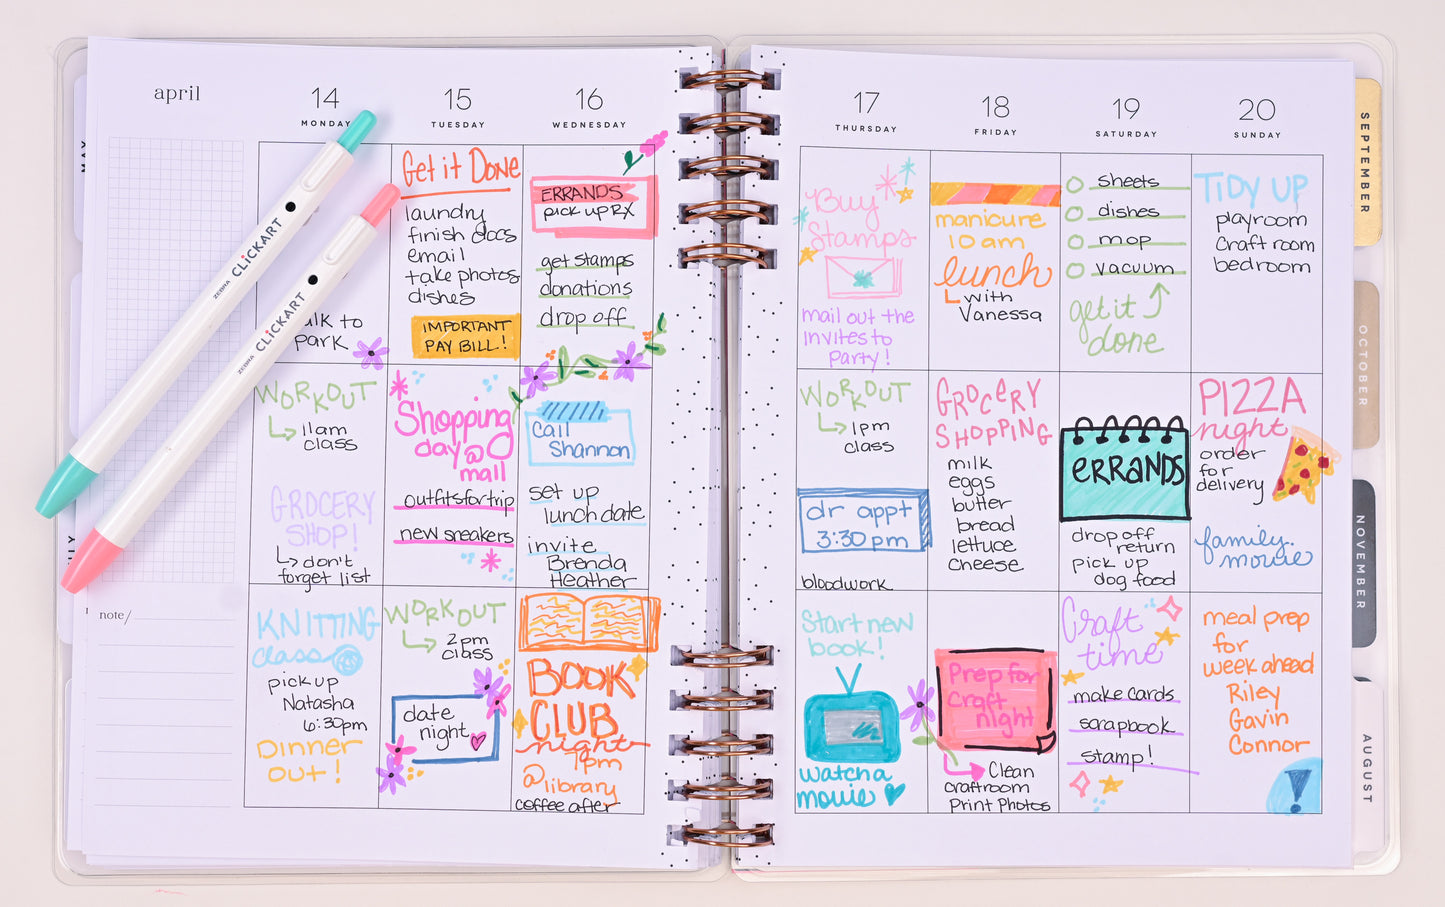 april
14
MONDAY
15
TUESDAY
16
WEDNESDAY
17
THURSDAY
18
FRIDAY
19
SATURDAY
20
SUNDAY
to
park
WORKOUT
11am
class
GROCERY
SHOP!
don't
forget list
KNITTING
class
pick up
Natasha
6:30pm
DINNER
OUT!
Get it DONE
laundry
finish docs
email
take photos
dishes
IMPORTANT
PAY BILL!
Shopping
day @
mall
outfits for trip
new sneakers
WORKOUT
2pm
class
date
night
ERRANDS
pick up RX
get stamps
donations
drop off
Call
Shannon
set up
lunch date
invite
Brenda
Heather
BOOK
CLUB
night
7pm
@library
coffee after
Buy
Stamps
mail out the
invites to
Party!
WORKOUT
1pm
class
dr appt
3:30pm
bloodwork
Start new
book!
watch a
movie
manicure
10 am
lunch
with
Vanessa
GROCERY
SHOPPING
milk
eggs
butter
bread
lettuce
cheese
Prep for
craft
night
Clean
craftroom
Print Photos
sheets
dishes
mop
vacuum
get it
done
ERRANDS
drop off
return
pick up
dog food
Craft
time
make cards
scrapbook
stamp!
TIDY UP
playroom
craft room
bedroom
PIZZA
night
order
for
delivery
family
movie
meal prep
for
week ahead
Riley
Gavin
Connor
!
note/
ZEBRA CLiCKART
ZEBRA CLiCKART
SEPTEMBER
OCTOBER
NOVEMBER
AUGUST